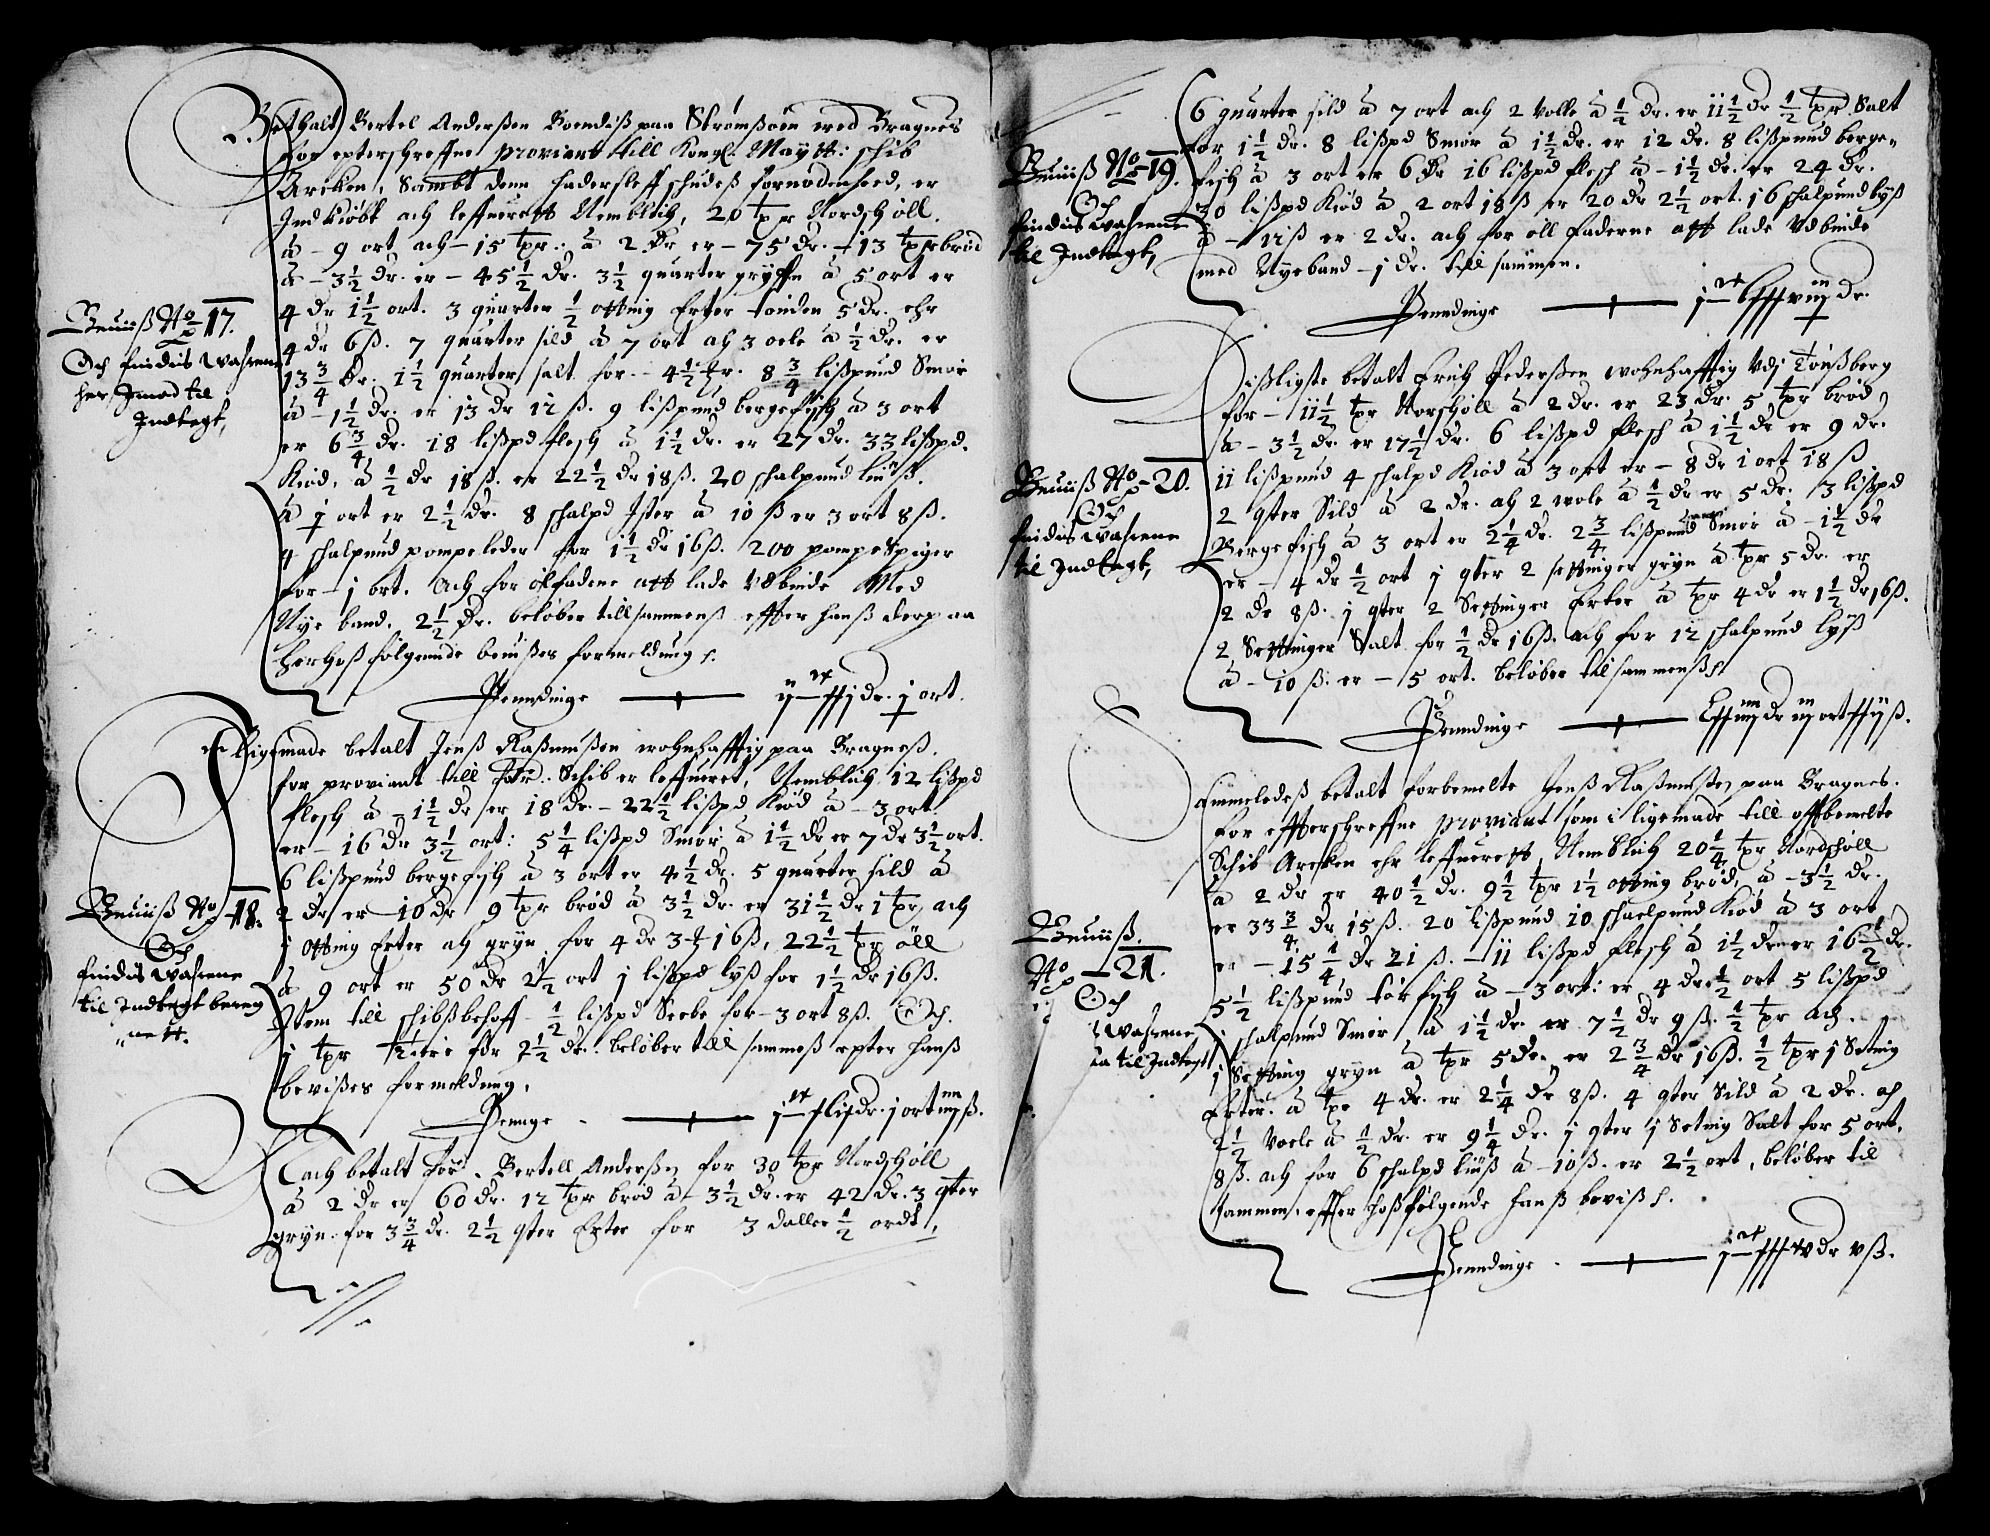 Betthalt Bertel Anderßen Boendiß paa Strømßøen wed Bragnes
for epterschreffne proviant thill Kongl: Maytt: schib
Arcken, Sambt denn haderßleff schudeß fornødenheed, er
Indkiøbt och leffuerett Nemblich, 20 tpr Nordsch øll
à - 9 ort och - 15 tpr. à 2 dr er - 75 dr. - 13 tpr brød
à - 3½ dr. er - 45½ dr. 3½ quarter gryffn à 5 ort er
4 dr 1½ ort. 3 quarter ½ otting Erter tønden 5 dr. ehr
4 dr 6 ß. 7 quarter sild à 7 ort och 3 vole à ½ dr. er
13¾ dr. 1½ quarter salt for - 4½ . 8¾ lißpund Smør
à - 1½ dr. er 13 dr 12 ß. 9 lißpund bergefisch à 3 ort
er 6¾ dr. 18 lißpd flesch à 1½ dr. er 27 dr. 33 lißpd.
Kiød, à ½ dr 18 ß. er 22½ dr 18 ß. 20 schalpund liuß.
à j ort er 2½ dr. 8 schalpd Ister à 10 ß er 3 ort 8 ß.
4 schalpund pompeleder for 1½ dr 16 ß. 200 pompespiger
for - j ort. Och for ølfadene att lade udbinde Med
Nye band. 2½ dr. beløber tillsammenß effter hanß derpaa
herhoß følgennde beuißes formeldung.
Penndinge — ij dr. j ort.
Beuiiß No 17.
Och findis wahrene
her Imod til
Indtegt,
Ligemade betalt Jenß Raßmußen wohnhafftig paa Bragneß.
for proviant till for: Schib er leffueret, Nemblich 12 lißpd
flesch à - 1½ dr er 18 dr - 22½ lißpd Kiød à - 3 ort
er - 16 dr 3½ ort: 5¼ lißpd Smør à 1½ dr er 7 dr 3½ ort.
6 lißpund bergefisch à 3 ort er 4½ dr. 5 quarter sild à
2 dr er - 10 dr 9 tpr brød à 3½ dr. er 31½ dr 1 tpr, och
j otting Erter och gryn for 4 dr 3 16 ß, 22½ tpr øll
à 9 ort er 50 dr 2½ ort j lißpd lyß for 1½ dr 16 ß.
Item till schibßbehoff - ½ lißpd Seebe for - 3 ort 8 ß. Och.
j tpr tiere for 2½ dr. beløber till sammeß epter hanß
bevißes formeldung,
Pennge — dr. j ort ß.
Beuiiß No 18.
Och
findis Wahrene
til Indtegt
Och betalt for: Bertell Anderßen for 30 tpr Nordsch øll
à 2 dr er 60 dr. 12 tpr brød à - 3½ dr. er 42 dr. 3 qter
gryn for 3¾ dr. 2½ qter Erter for 3 daller ½ ordt,
6 quarter sild à 7 ort och 2 volle à ½ dr. er 11½ dr ½ tpr Salt
for 1½ dr. 8 lißpd Smør à 1½ dr. er 12 dr. 8 lißpund berge-
fisch à 3 ort er 6 dr 16 lißpd flesch à - 1½ dr. er 24 dr.
30 lißpd Kiød à 2 ort 18 ß er 20 dr 2½ ort. 16 schalpund lyß
à - 12 ß er 2 dr. och for øll faderne att lade Udbinde
med Nyeband - j dr. till sammen.
Penndinge — dr.
Beuiiß No 19.
Och
findis Wahrene
til Indtegt,
Dißligste betalt Erich Pederßen wohnhafftig Udj Tønßberg
for - 11½ tpr Norsch øll à 2 dr. er 23 dr. 5 tpr brød
à - 3½ dr. er 17½ dr. 6 lißpd flesch à 1½ dr er 9 dr.
11 lißpund 4 schalpd Kiød à 3 ort er - 8 dr 1 ort 18 ß
2 qter Sild à 2 dr. och 2 wole à ½ dr er 5 dr. 3 lißpd
Bergefisch à 3 ort er 2¼ dr. 2¾ lißpund Smør à - 1½ dr
er - 4 dr ½ ort j qter 2 settinger gryn à tpr 5 dr. er
2 dr 8 ß. j qter 2 Settinger Erter à tpr 4 dr er 1½ dr 16 ß.
2 Settinger Salt for ½ dr 16 ß. och for 12 schalpund lyß
à - 10 ß. er - 5 ort. beløber til sammenß
Penndinge — dr ort ß.
Beuiiß No 20.
Och
findis Wahrene
til Indtegt,
Sammeledeß betalt forbemelte Jenß Raßmußen paa Bragnes.
for effterschreffne proviant som i ligemade till offbemelte
Schib Arcken ehr leffuerett, Nemblich 20¼ tpr Nordsch øll
à 2 dr er 40½ dr. 9½ tpr 1½ otting brød, à - 3½ dr.
er 33¾ dr 15 ß. 20 lißpund 10 schaelpund Kiød à 3 ort
er - 15¼ dr 21 ß. - 11 lißpd flesch à 1½ dr er 16½ dr.
5½ lißpund tørfisch à - 3 ort: er 4 dr ½ ort 5 lißpd
j schalpund Smør à 1½ dr. er 7½ dr 9 ß. ½ tpr och.
j Setting gryn à tpr 5 dr. er 2¾ dr 16 ß. ½ tpr j Setnig
Erter. à tpr 4 dr. er 2¼ dr 8 ß. 4 qter Sild à 2 dr. och
2½ Voele à ½ dr. er 9¼ dr. j qter j Setnig Salt for 5 ort.
8 ß. och for 6 schalpd liuß à - 10 ß. er 2½ ort, beløber til
sammen. effter hoßfølgende hanß beviß.
Penndinge — dr vß.
Beuiiß.
No 21.
Och
Wahrene
til Indtegt